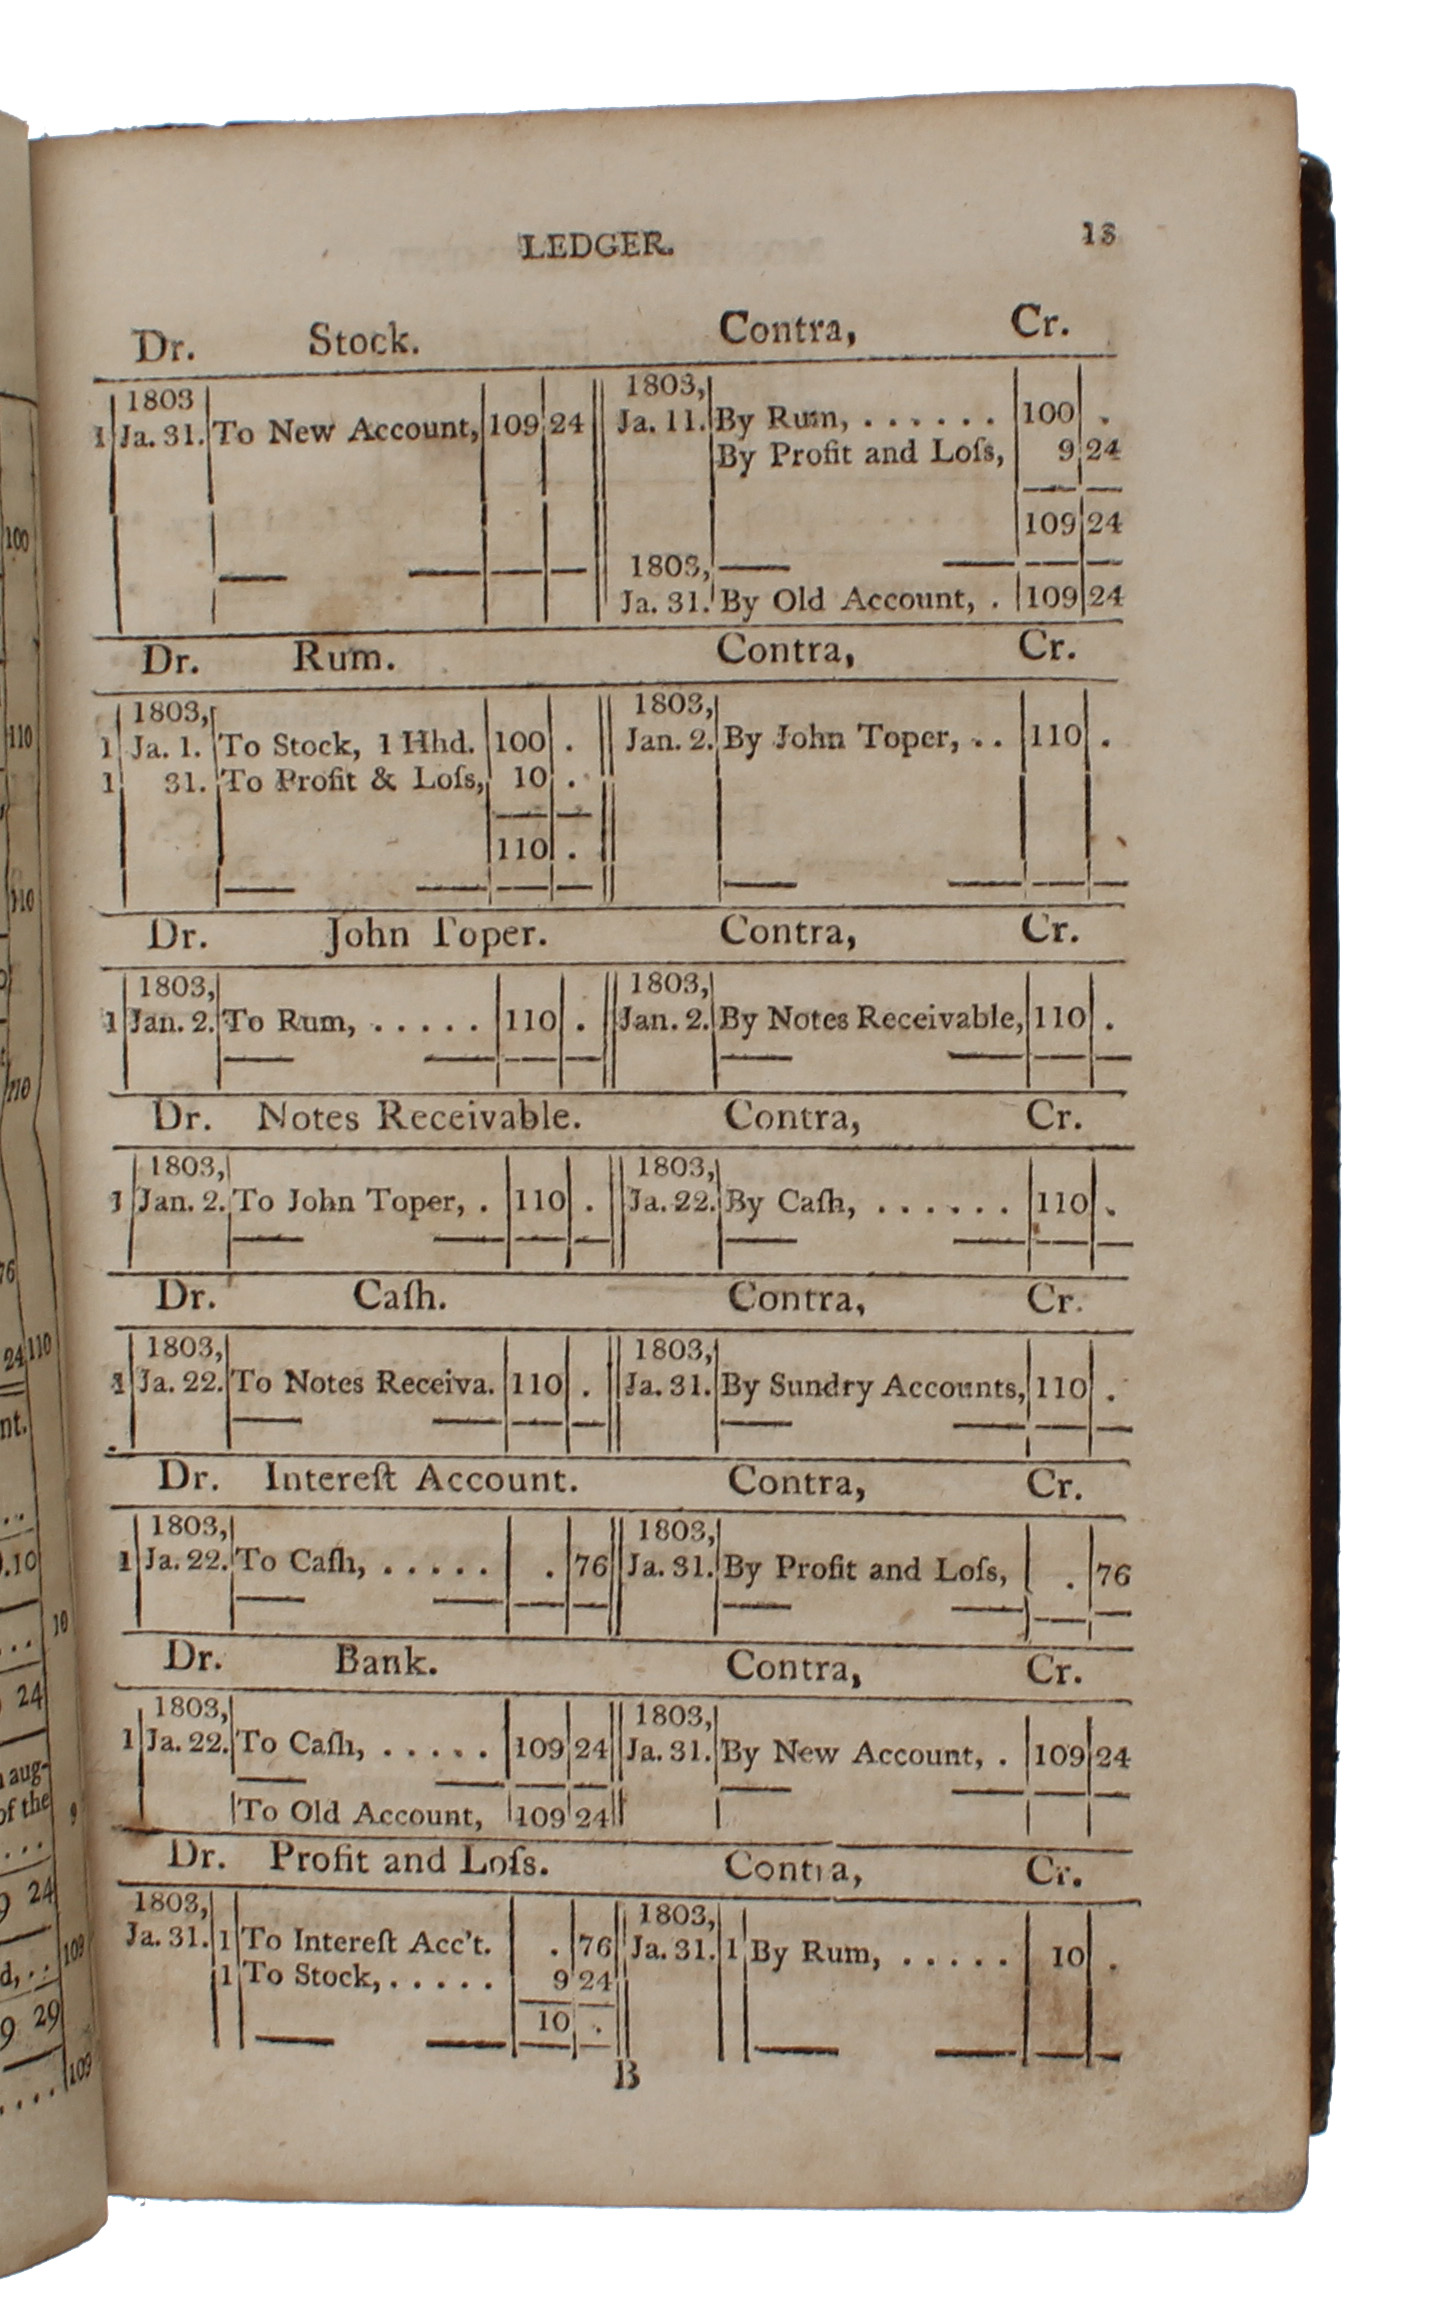 LEDGER. 13
Dr. Stock. Contra, Cr.
1803 1803,
1 Ja. 31. To New Account, 109 24 Ja. 11. By Rum, . . . . . . 100 .
By Profit and Loſs, 9 24
109 24
1803,
Ja. 31. By Old Account, . 109 24
Dr. Rum. Contra, Cr.
1803, 1803,
1 Ja. 1. To Stock, 1 Hhd. 100 . Jan. 2. By John Toper, . . 110 .
1 31. To Profit & Loſs, 10 .
110 .
Dr. John Toper. Contra, Cr.
1803, 1803,
1 Jan. 2. To Rum, . . . . . 110 . Jan. 2. By Notes Receivable, 110 .
Dr. Notes Receivable. Contra, Cr.
1803, 1803,
1 Jan. 2. To John Toper, . 110 . Ja. 22. By Caſh, . . . . . . 110 .
Dr. Caſh. Contra, Cr.
1803, 1803,
1 Ja. 22. To Notes Receiva. 110 . Ja. 31. By Sundry Accounts, 110 .
Dr. Intereſt Account. Contra, Cr.
1803, 1803,
1 Ja. 22. To Caſh, . . . . . . 76 Ja. 31. By Profit and Loſs, . 76
Dr. Bank. Contra, Cr.
1803, 1803,
1 Ja. 22. To Caſh, . . . . . 109 24 Ja. 31. By New Account, . 109 24
To Old Account, 109 24
Dr. Profit and Loſs. Contra, Cr.
1803, 1803,
Ja. 31. 1 To Intereſt Acc't. . 76 Ja. 31. 1 By Rum, . . . . . 10 .
1 To Stock, . . . . . 9 24
10 .
B
100
110
110
110
76
24 110
nt.
.10
10
24
aug-
of the 9
9 24
109
d, . .
9 29
109